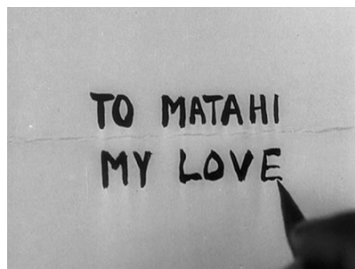 TO MATAHI
MY LOVE